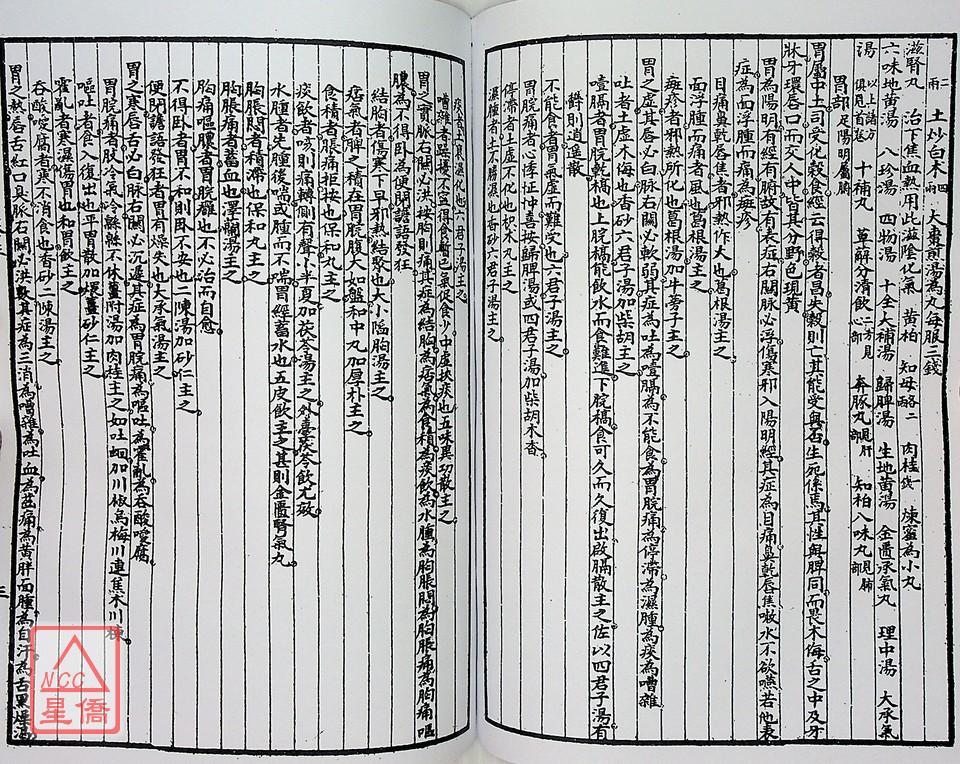 二兩 土炒白朮 四兩 大棗煎湯為丸每服三錢
滋腎丸 治下焦血熱用此滋陰化氣 黃柏 知母酪二 肉桂 煉蜜為小丸
六味地黃湯 八珍湯 四物湯 十全大補湯 歸脾湯 生地黃湯 金匱承氣丸 理中湯 大承氣
湯 以上諸方俱見首卷 十補丸 萆解分清飲 二方見心部 奔豚丸 見肝部 知柏八味丸 見肺部
胃部足陽明屬腑
胃屬中土司受化穀食經云得穀者昌失穀則亡其能受與否生死係焉其性與脾同而畏木侮舌之中及牙
牀牙環唇口而交人中皆其分野色現黃
胃為陽明有經有腑故有表症右關脈必浮傷寒邪入陽明經其症為目痛鼻乾唇焦嗽水不欲嚥若他表
症為面浮腫而痛為癍疹
目痛鼻乾唇焦者邪熱作火也葛根湯主之
面浮腫而痛者風也葛根湯主之
癍疹者邪熱所化也葛根湯加牛蒡子主之
胃之虛其唇必白脉右關必軟弱其症為吐為噎膈為不能食為胃脘痛為停滯為濕腫為痰為嘈雜
吐者土虛木侮也香砂六君子湯加柴胡主之
噎膈者胃脘乾槁也上脘槁能飲水而食難進下脘槁食可久而久復出啟膈散主之佐以四君子湯有
鬱則逍遙散
不能食者胃氣虛而難受也六君子湯主之
胃脘痛者心悸怔忡喜按歸脾湯或四君子湯加柴胡木香
停滯者土虛不化也枳朮丸主之
濕腫者土不勝濕也香砂六君子湯主之
痰者土衰濕化也六君子湯主之
嘈雜者躁擾不寧得食暫已氣促食少中虛挾痰也五味異功散主之
胃之實脉右關必洪按胸則痛其症為結胸為痞氣為食積為痰飲為水腫為胸脹悶為胸脹痛為胸痛嘔
膿為不得臥為便閉譫語發狂
結胸者傷寒下早邪熱結聚也大小陷胸湯主之
痞氣者脾之積在胃脘腹大如盤和中丸加厚朴主之
食積者脹痛拒按也保和丸主之
痰飲者咳則痛轉側有聲小半夏加茯苓湯主之外臺茯苓飲尤效
水腫者先腫後喘或腫而不喘胃經蓄水也五皮飲主之甚則金匱腎氣丸
胸脹悶者積滯也保和丸主之
胸脹痛者蓄血也澤蘭湯主之
胸痛嘔膿者胃脘癰也不必治而自愈
不得臥者胃不和則臥不安也二陳湯加砂仁主之
便閉譫語發狂者胃有燥失也大承氣湯主之
胃之寒唇舌必白脉右關必沉遲其症為胃脘痛為嘔吐為霍亂為吞酸噯腐
胃脘痛者肢冷氣冷綿綿不休薑附湯加肉桂主之如吐蛔加川椒烏梅川連焦朮川楝
嘔吐者食入復出也平胃散加煨薑砂仁主之
霍亂者寒濕傷胃也和胃飲主之
吞酸噯腐者寒不消食也香砂二陳湯主之
胃之熱唇舌紅口臭脉右關必洪數其症為三消為嘈雜為吐血為齒痛為黃胖面腫為自汗為舌黑燥渴
三
NCC
星僑